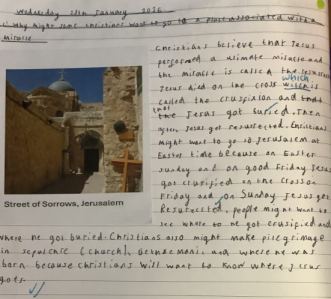 Wednesday 20th January 2016
L: Why might some christians want to go to a place associated with a
miracle
Christians believe that Jesus
performed a ultimate miracle and
the miracle is called the
Jesus died on the cross which
called the crusifsion and that
the Jesus got buried. Then
Jesus got resurected. Christians
might want to go to Jerusalem at
Easter time because on Easter
sunday and on good Friday Jesus
got crusified on the cross on
Friday and on Sunday Jesus got
Resurected, people might want to
see where he got crusified and
where he got buried. Christians also might make pilegrimage
in sepulcre (church), Gethsemani, and where he was
born because christians will want to know where Jesus
goes.
Street of Sorrows, Jerusalem